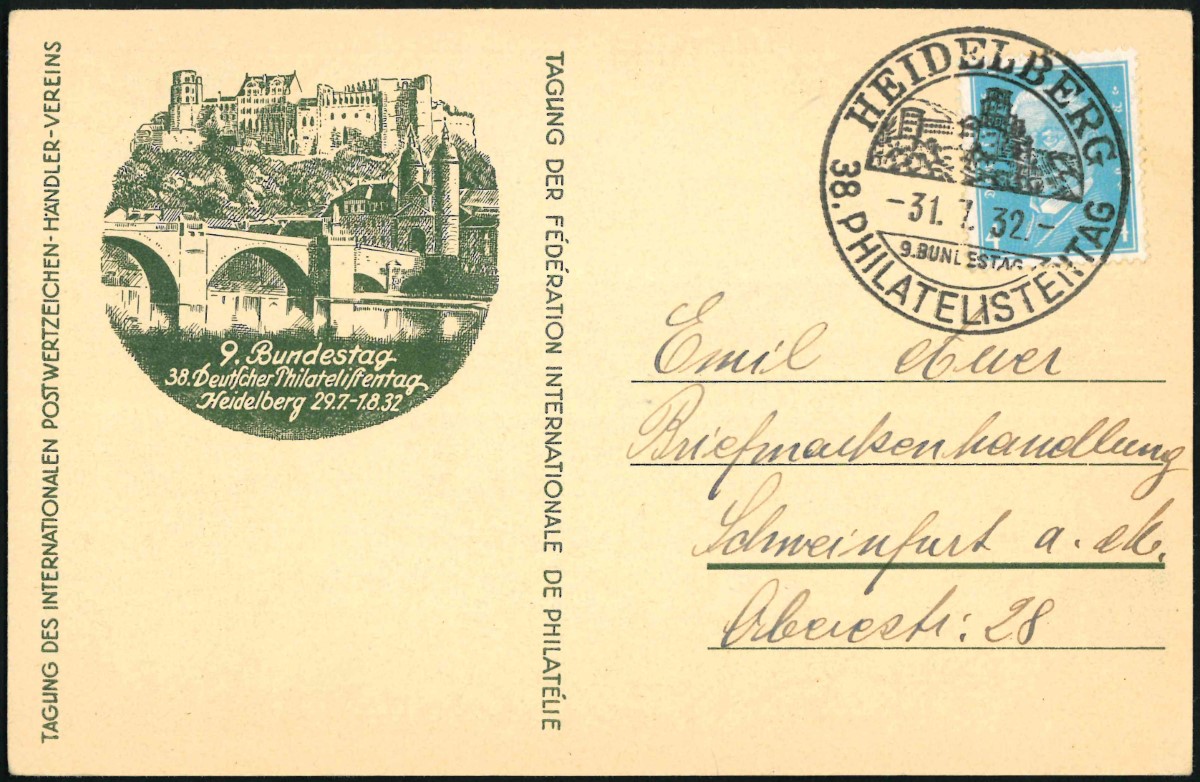 TAGUNG DES INTERNATIONALEN POSTWERTZEICHEN-HÄNDLER-VEREINS
9. Bundestag
38. Deutscher Philatelistentag
Heidelberg 29.7.-1.8.32
TAGUNG DER FÉDÉRATION INTERNATIONALE DE PHILATÉLIE
HEIDELBERG
-31.7.32.-
9. BUNDESTAG
38. PHILATELISTENTAG
4
Emil Auer
Briefmarkenhandlung
Schweinfurt a. M.
Oberestr: 28